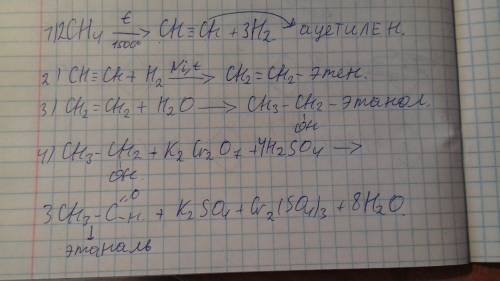 1) 2CH4 t 1500° → CH≡CH + 3H2 ацетилЕН.
2) CH≡CH + H2 Ni,t → CH2=CH2 - этен.
3) CH2=CH2 + H2O → CH3-CH2 - этанол.
OH
4) CH3-CH2 + K2Cr2O7 + 4H2SO4 →
OH
3CH3-C=O-H + K2SO4 + Cr2(SO4)3 + 8H2O.
этаналь